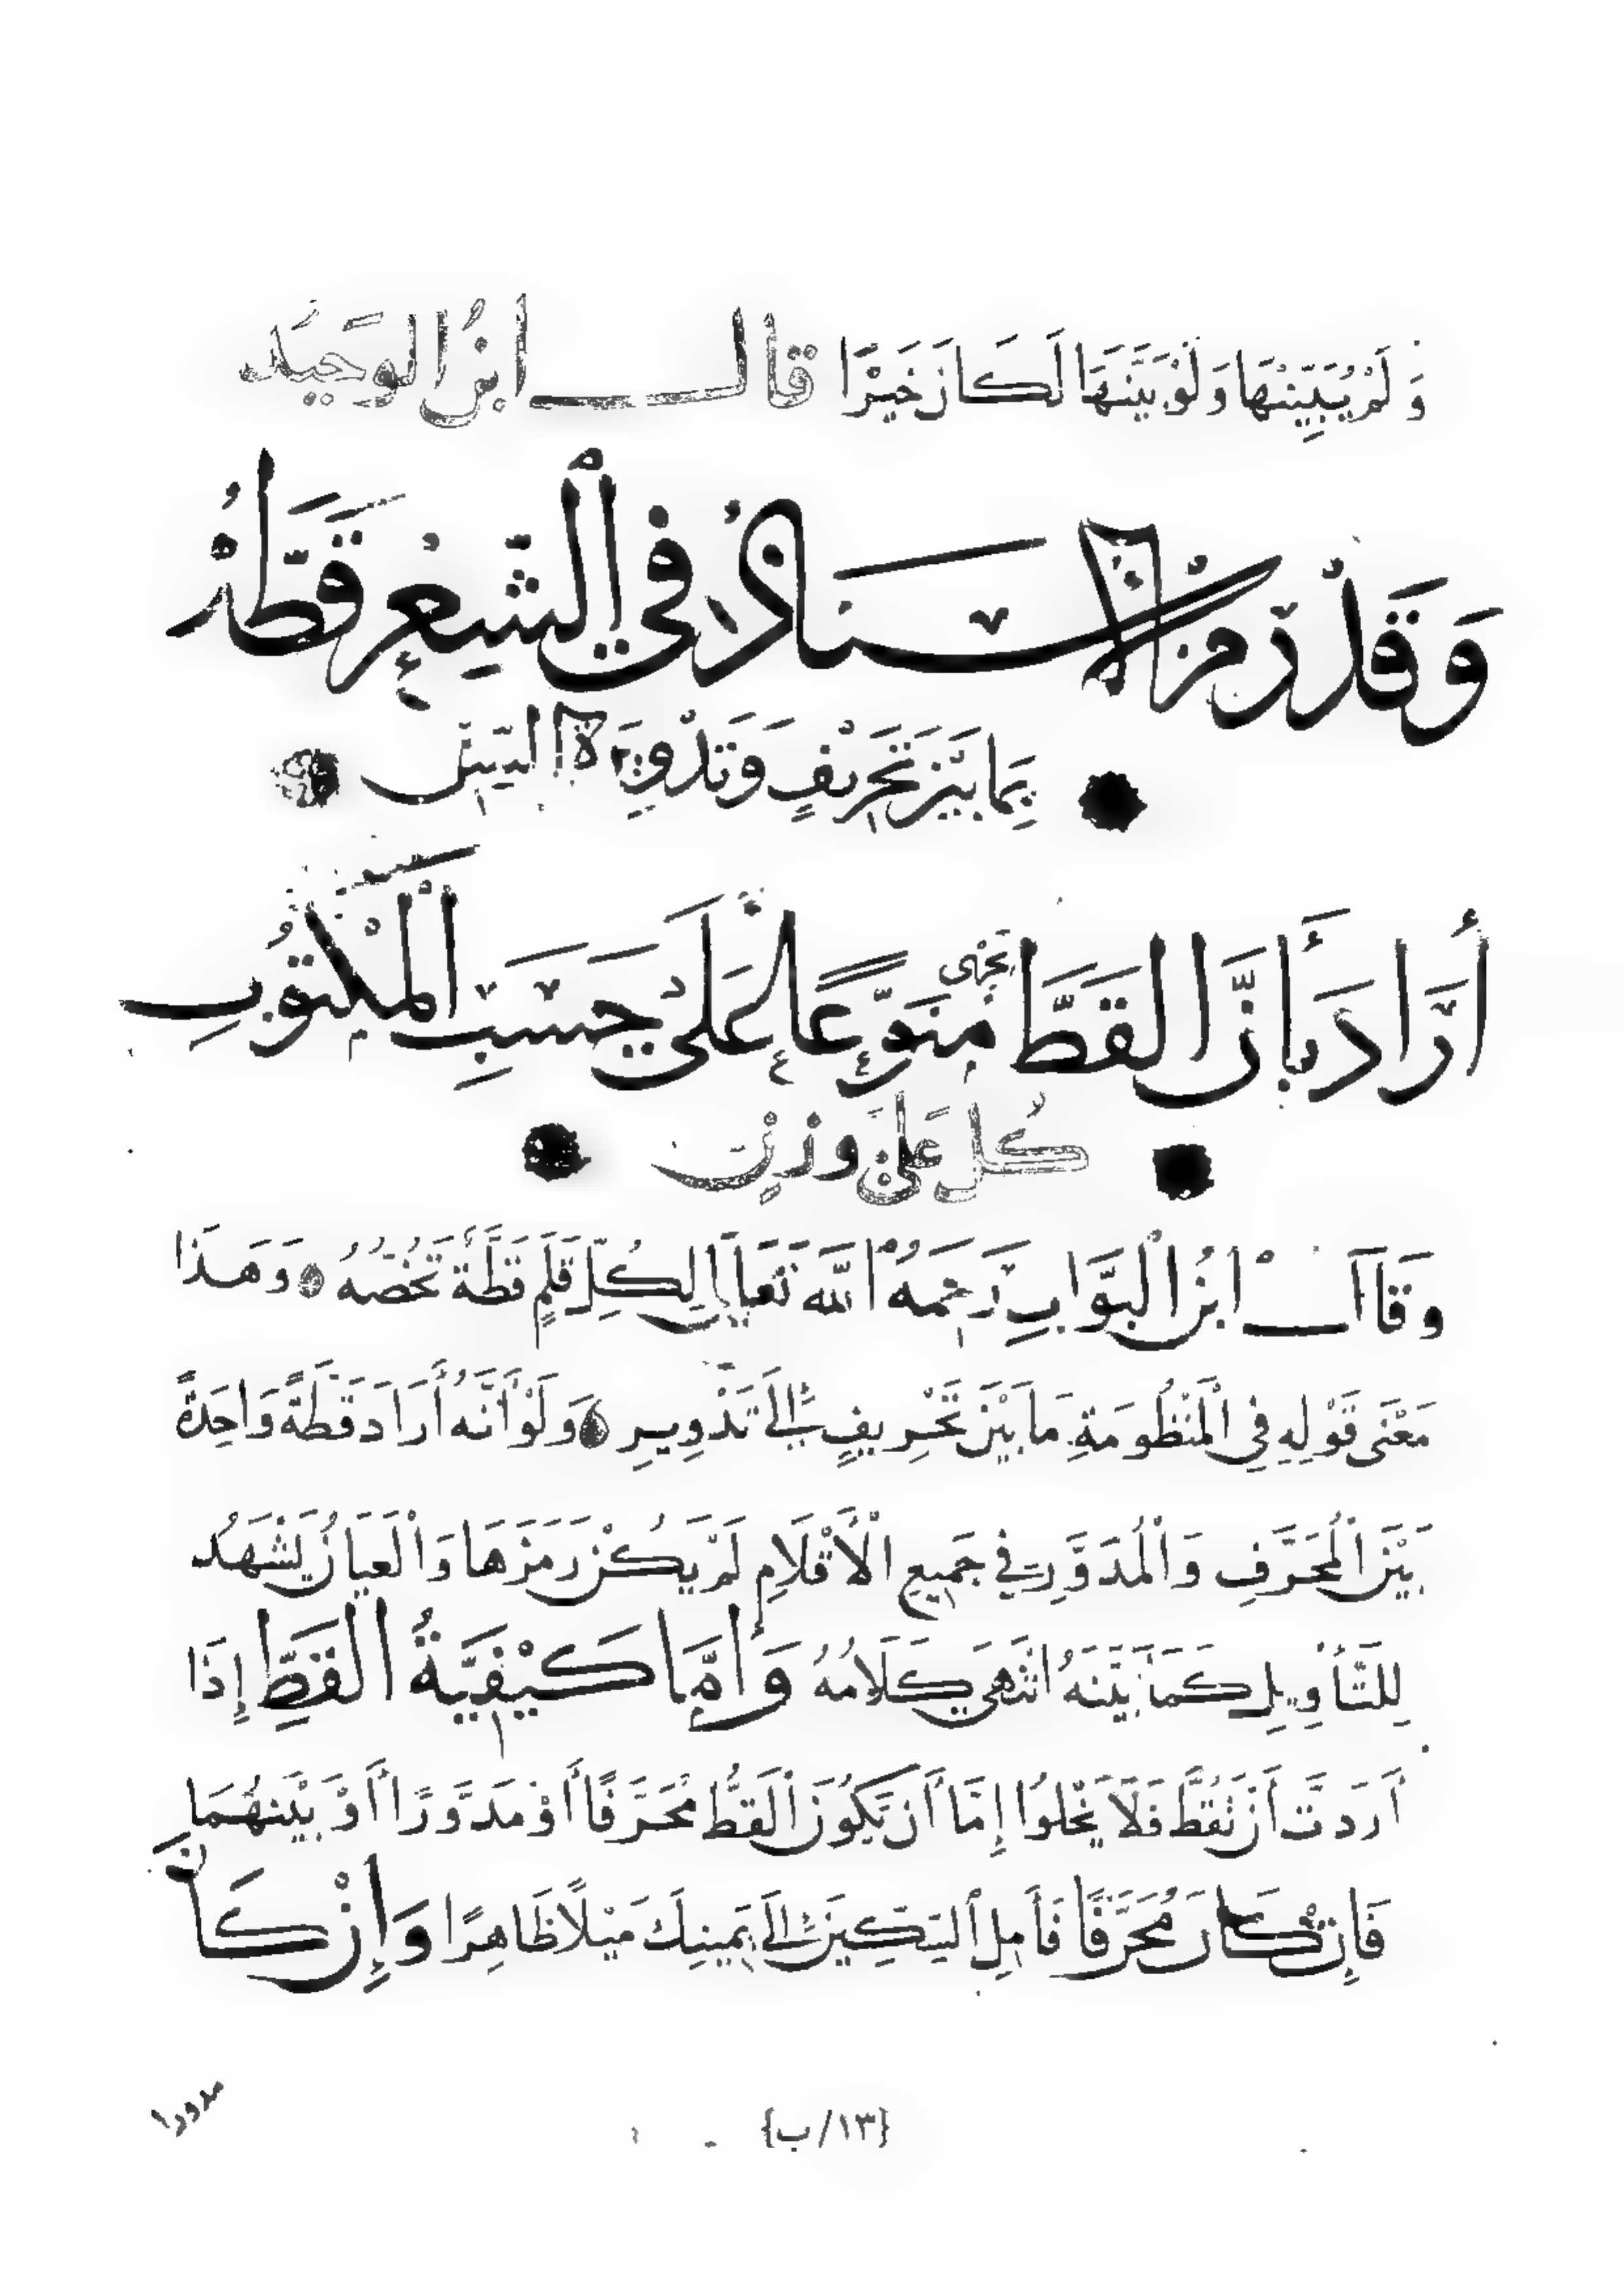 وَلَمْ يُبَيِّنْهَا وَلَوْ بَيَّنَهَا لَكَانَ خَيْرًا قال ابن الوحيد
وَقَدْ رَمَزَ الأُسْتَاذُ فِي الشِّعْرِ قَطَّهُ
بِمَا بَيْنَ تَحْرِيفٍ وَتَدْوِيرَةِ السِّنِّ
أَرَادَ بِأَنَّ القَطَّ يَجْرِي
مُنَوَّعًا عَلَى حَسَبِ الْمَكْتُوبِ
كُلٌّ عَلَى وَزْنِ
وَقَالَ ابْنُ الْبَوَّابِ رَحِمَهُ اللَّه تَعَالَى لِكُلِّ قَلَمٍ قَطَّةٌ تَخُصُّهُ وَهَذَا
مَعْنَى قَوْلِهِ فِي الْمَنْظُومَةِ مَا بَيْنَ تَحْرِيفٍ إِلَى تَدْوِيرِ وَلَوْ أَنَّهُ أَرَادَ قَطَّةً وَاحِدَةً
بَيْنَ الْمُحَرَّفِ وَالْمُدَوَّرِ فِي جَمِيعِ الْأَقْلَامِ لَمْ يَكُنْ رَمَزَهَا وَالْعِيَانُ يَشْهَدُ
لِلتَّأْوِيلِ كَمَا بَيَّنَهُ انْتَهَى كَلَامُهُ وَأَمَّا كَيْفِيَّةُ الْقَطِّ إِذَا
أَرَدتَّ أَنْ تَقُطَّ فَلَا يَخْلُوا إِمَّا أَنْ يَكُونَ الْقَطُّ مُحَرَّفًا أَوْ مُدَوَّرًا أَوْ بَيْنَهُمَا
فَإِنْ كَانَ مُحَرَّفًا فَأَمِلِ السِّكِّينَ إِلَى يَمِينِكَ مَيْلًا ظَاهِرًا وَإِنْ كَانَ
مدورا
{١٣/ب}